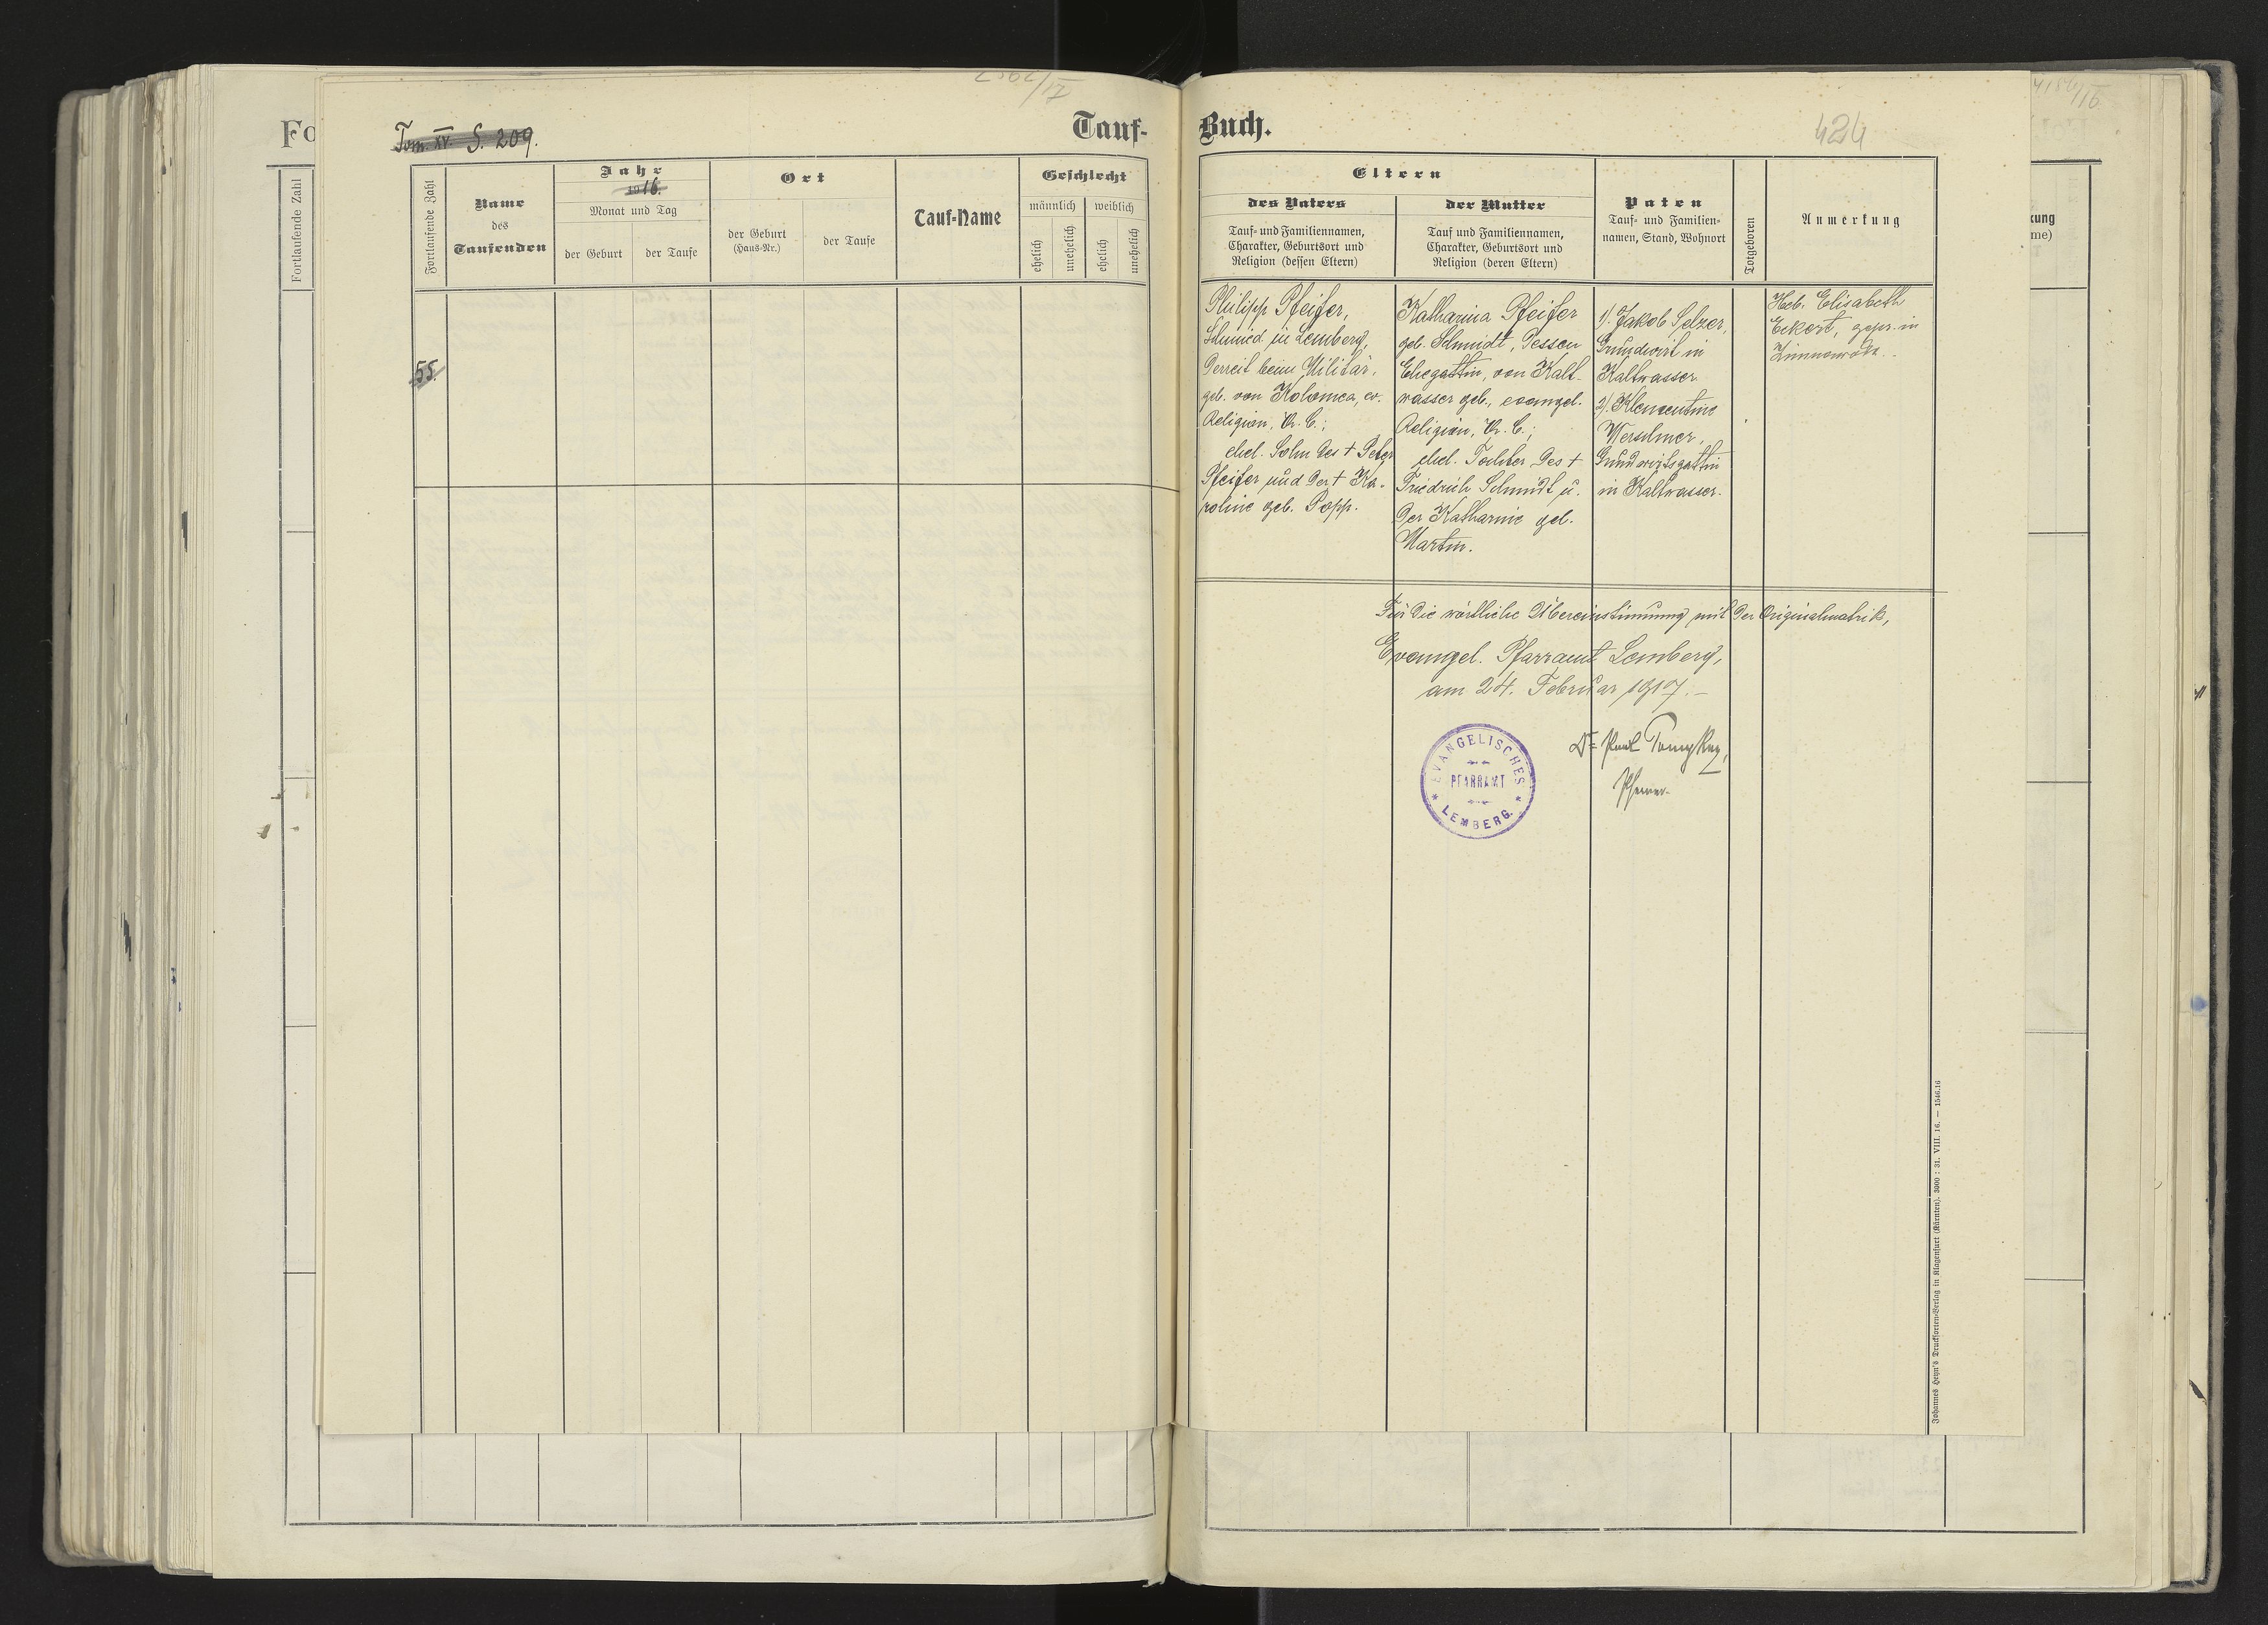 Tom. XV. S. 209.
Tauf-
Fortlaufende Zahl
Name
des
Taufenden
Jahr
1916.
Monat und Tag
der Geburt
der Taufe
Ort
der Geburt
(Haus-Nr.)
der Taufe
Tauf-Name
Geschlecht
männlich
weiblich
ehelich
unehelich
ehelich
unehelich
55.
Fo
Fortlaufende Zahl
Buch.
424
Eltern
des Vaters
Tauf- und Familiennamen,
Charakter, Geburtsort und
Religion (dessen Eltern)
der Mutter
Tauf und Familiennamen,
Charakter, Geburtsort und
Religion (deren Eltern)
Paten
Tauf- und Familien-
namen, Stand, Wohnort
Totgeboren
Anmerkung
Philipp Pfeifer,
Schmied in Lemberg,
derzeit beim Militär,
geb. von Kolomea, ev.
Religion, A. C.;
ehel. Sohn des + Peter
Pfeifer und der + Ka-
roline geb. Popp.
Katharina Pfeifer
geb. Schmidt, dessen
Ehegattin, von Kalt-
wasser geb., evangel.
Religion, A. C.;
ehel. Tochter des +
Friedrich Schmidt u.
der Katharine geb.
Martin.
1). Jakob Selzer,
Grundwirt in
Kaltwasser.
2). Klementine
Werschner,
Grundwirtsgattin
in Kaltwasser.
Heb. Elisabeth
Eckert, gepr. in
Für die wörtliche Übereinstimmung mit der Originalmatrik,
Evangel. Pfarramt Lemberg,
am 24. Februar 1917.-
EVANGELISCHES
PFARRAMT
LEMBERG.
Dr Paul
Pfarrer.
Johannes Heyn's Drucksorten-Verlag in Klagenfurt (Kärnten). 3000 : 31. VIII. 16. — 1546.16
kung
me)